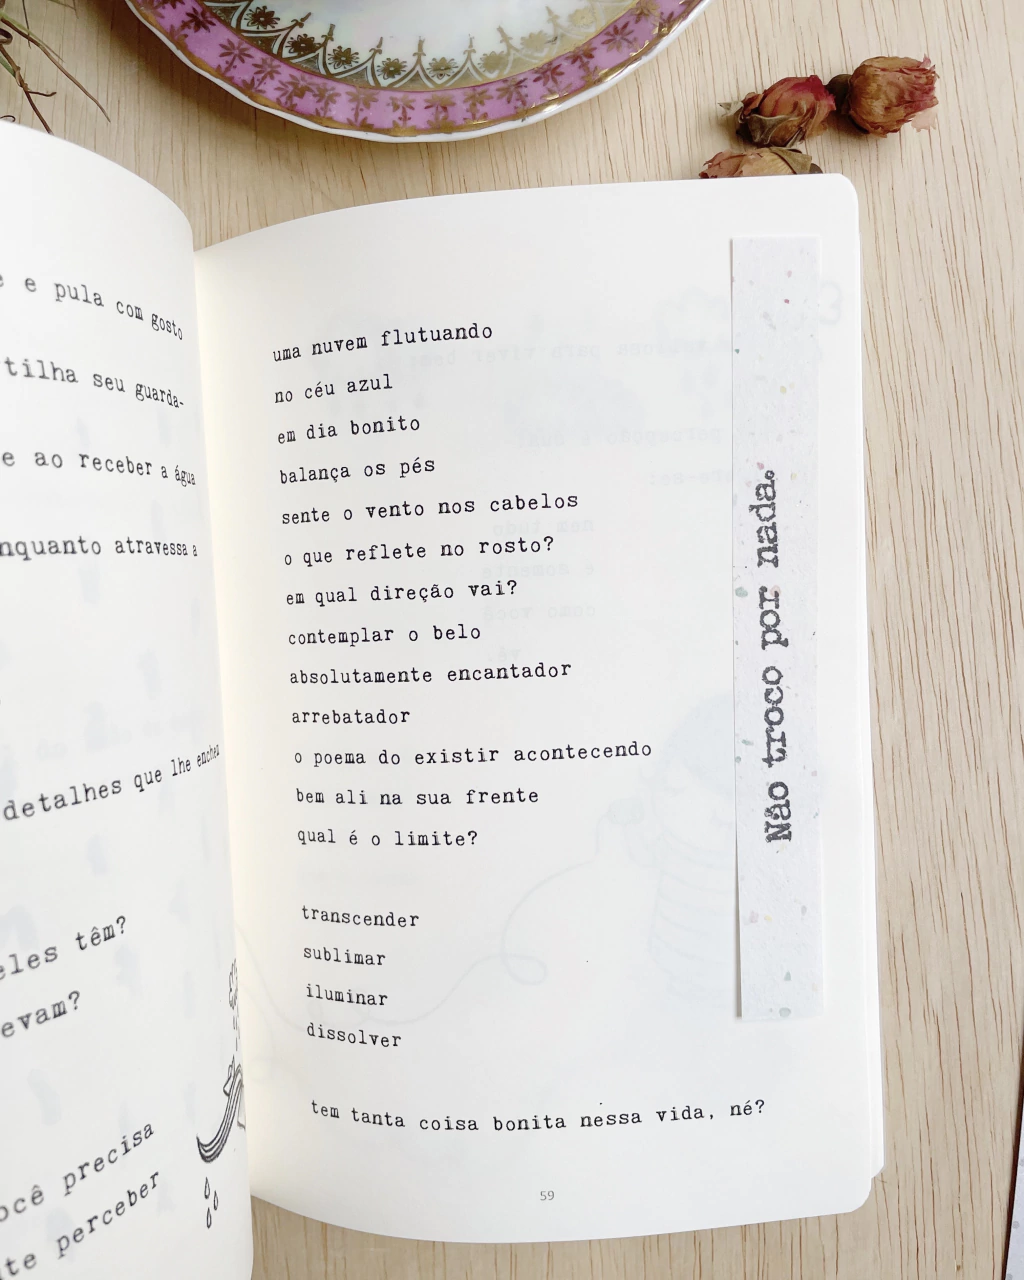 e pula com gosto
seu guarda-
e ao receber a água
atravessa a
detalhes que lhe
têm?
precisa
perceber
uma nuvem flutuando
no céu azul
em dia bonito
balança os pés
sente o vento nos cabelos
o que reflete no rosto?
em qual direção vai?
contemplar o belo
absolutamente encantador
arrebatador
o poema do existir acontecendo
bem ali na sua frente
qual é o limite?
transcender
sublimar
iluminar
dissolver
tem tanta coisa bonita nessa vida, né?
59
Não troco por nada.